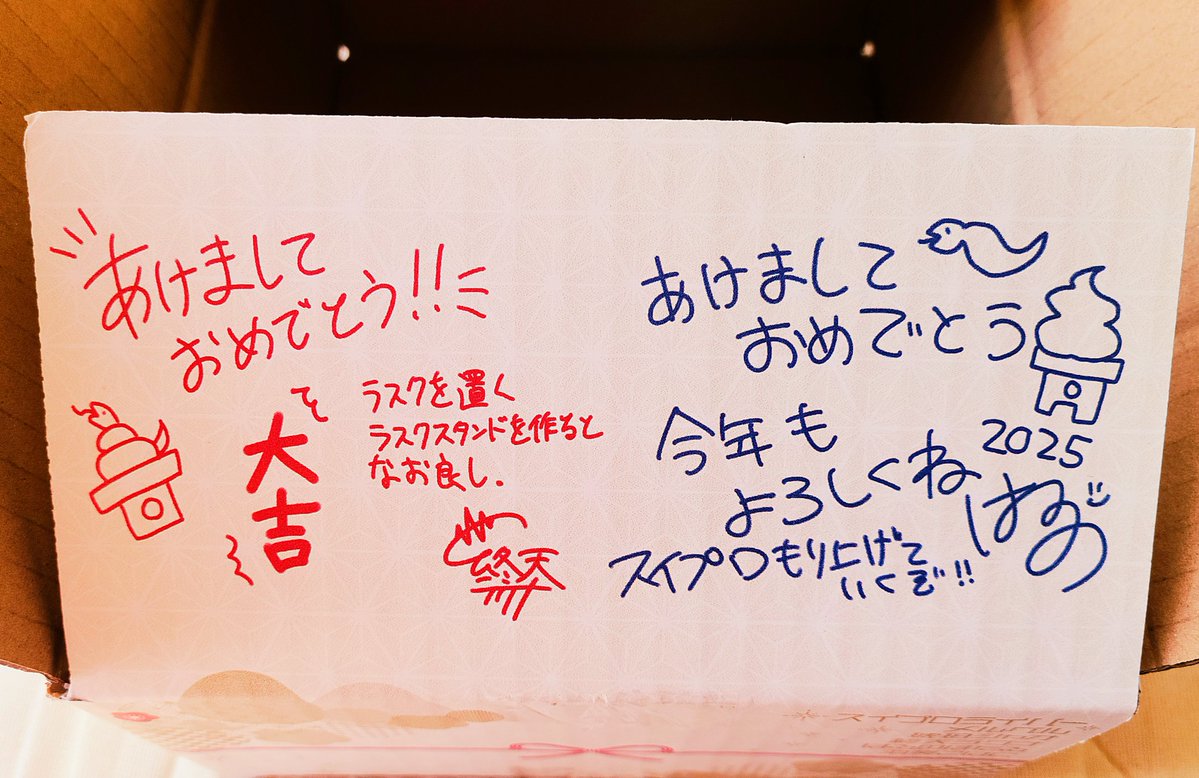 あけまして
おめでとう!!
〜大吉〜
ラスクを置く
ラスクスタンドを作ると
なお良し.
終天
あけまして
おめでとう
今年も
よろしくね
2025
はるの
スイプロもり上げて
いくぞ!!